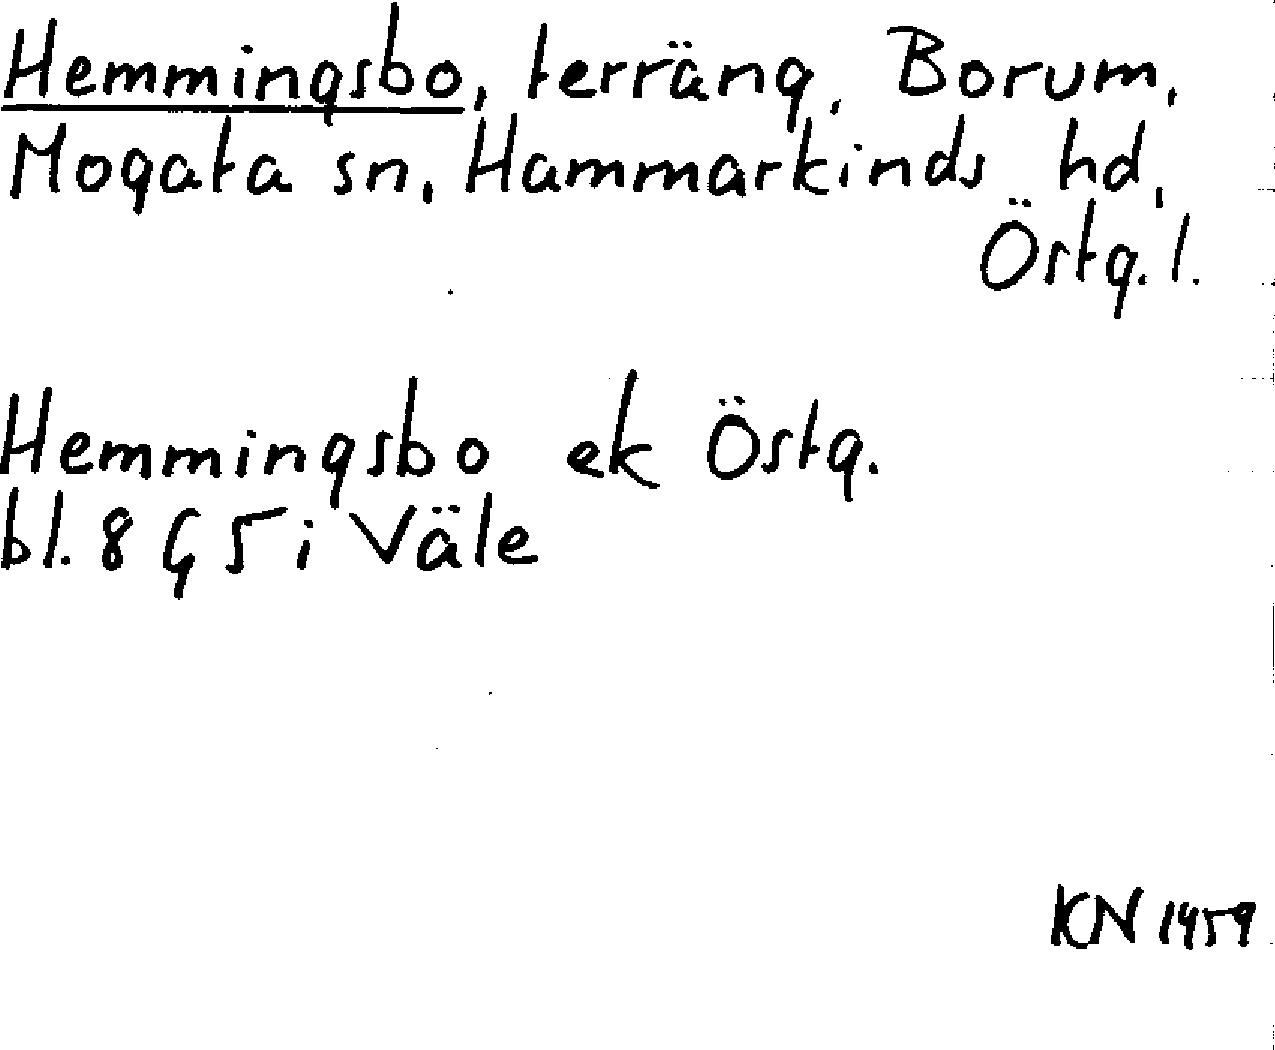 Hemmingsbo, terräng, Borum,
Mogata sn, Hammarkinds hd,
Östg. l.
Hemmingsbo ek Östg.
bl. 8 G 5 i Väle
KN 1459